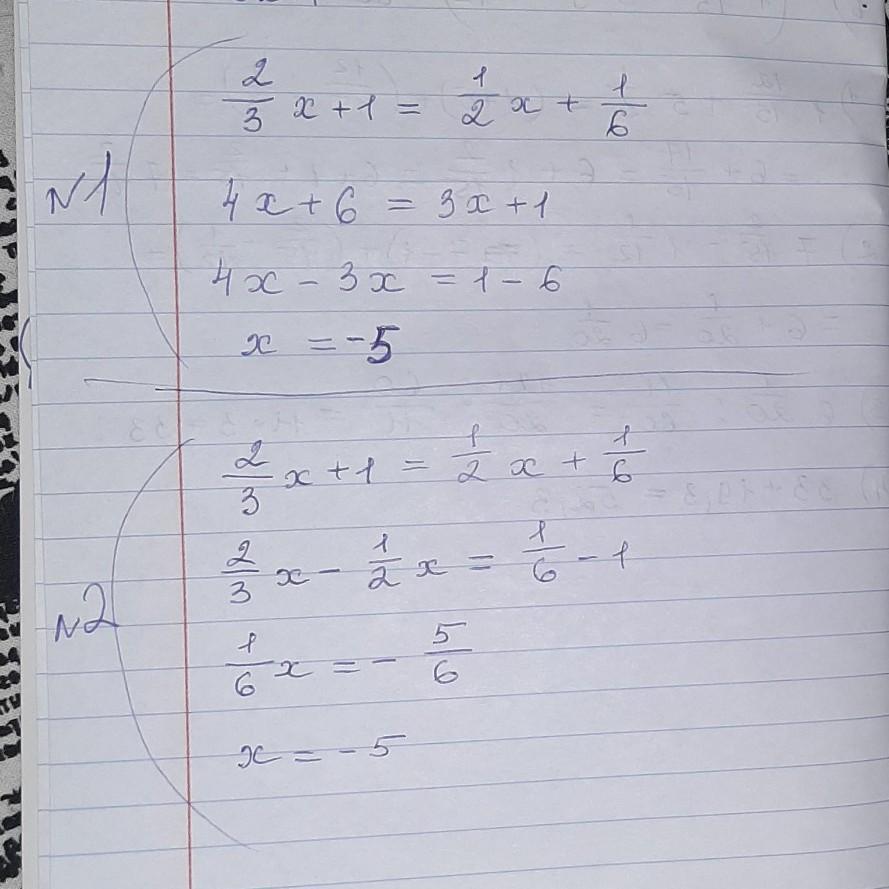 N1
2/3 x + 1 = 1/2 x + 1/6
4x + 6 = 3x + 1
4x - 3x = 1 - 6
x = -5
N2
2/3 x + 1 = 1/2 x + 1/6
2/3 x - 1/2 x = 1/6 - 1
1/6 x = - 5/6
x = - 5